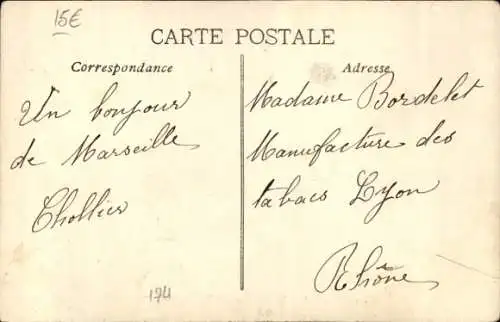 15€
CARTE POSTALE
Correspondance
Un bonjour
de Marseille
Thollier
174
Adresse
Madame Bordelet
Manufacture des
tabacs Lyon
Rhône